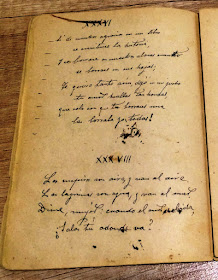 XXXVI
Si de nuestros agravios en un libro
se escribiese la historia,
y se borrase en nuestras almas cuanto
se borrase en sus hojas;
Te quiero tanto aún, dejó en mi pecho
tu amor huellas tan hondas,
que solo con que tu borrases una
las borraba yo todas!
XXXVIII
Los suspiros son aire, y van al aire
Las lágrimas son agua, y van al mar
Dime, mujer, cuando el amor se olvida,
¿Sabes tú adonde va?